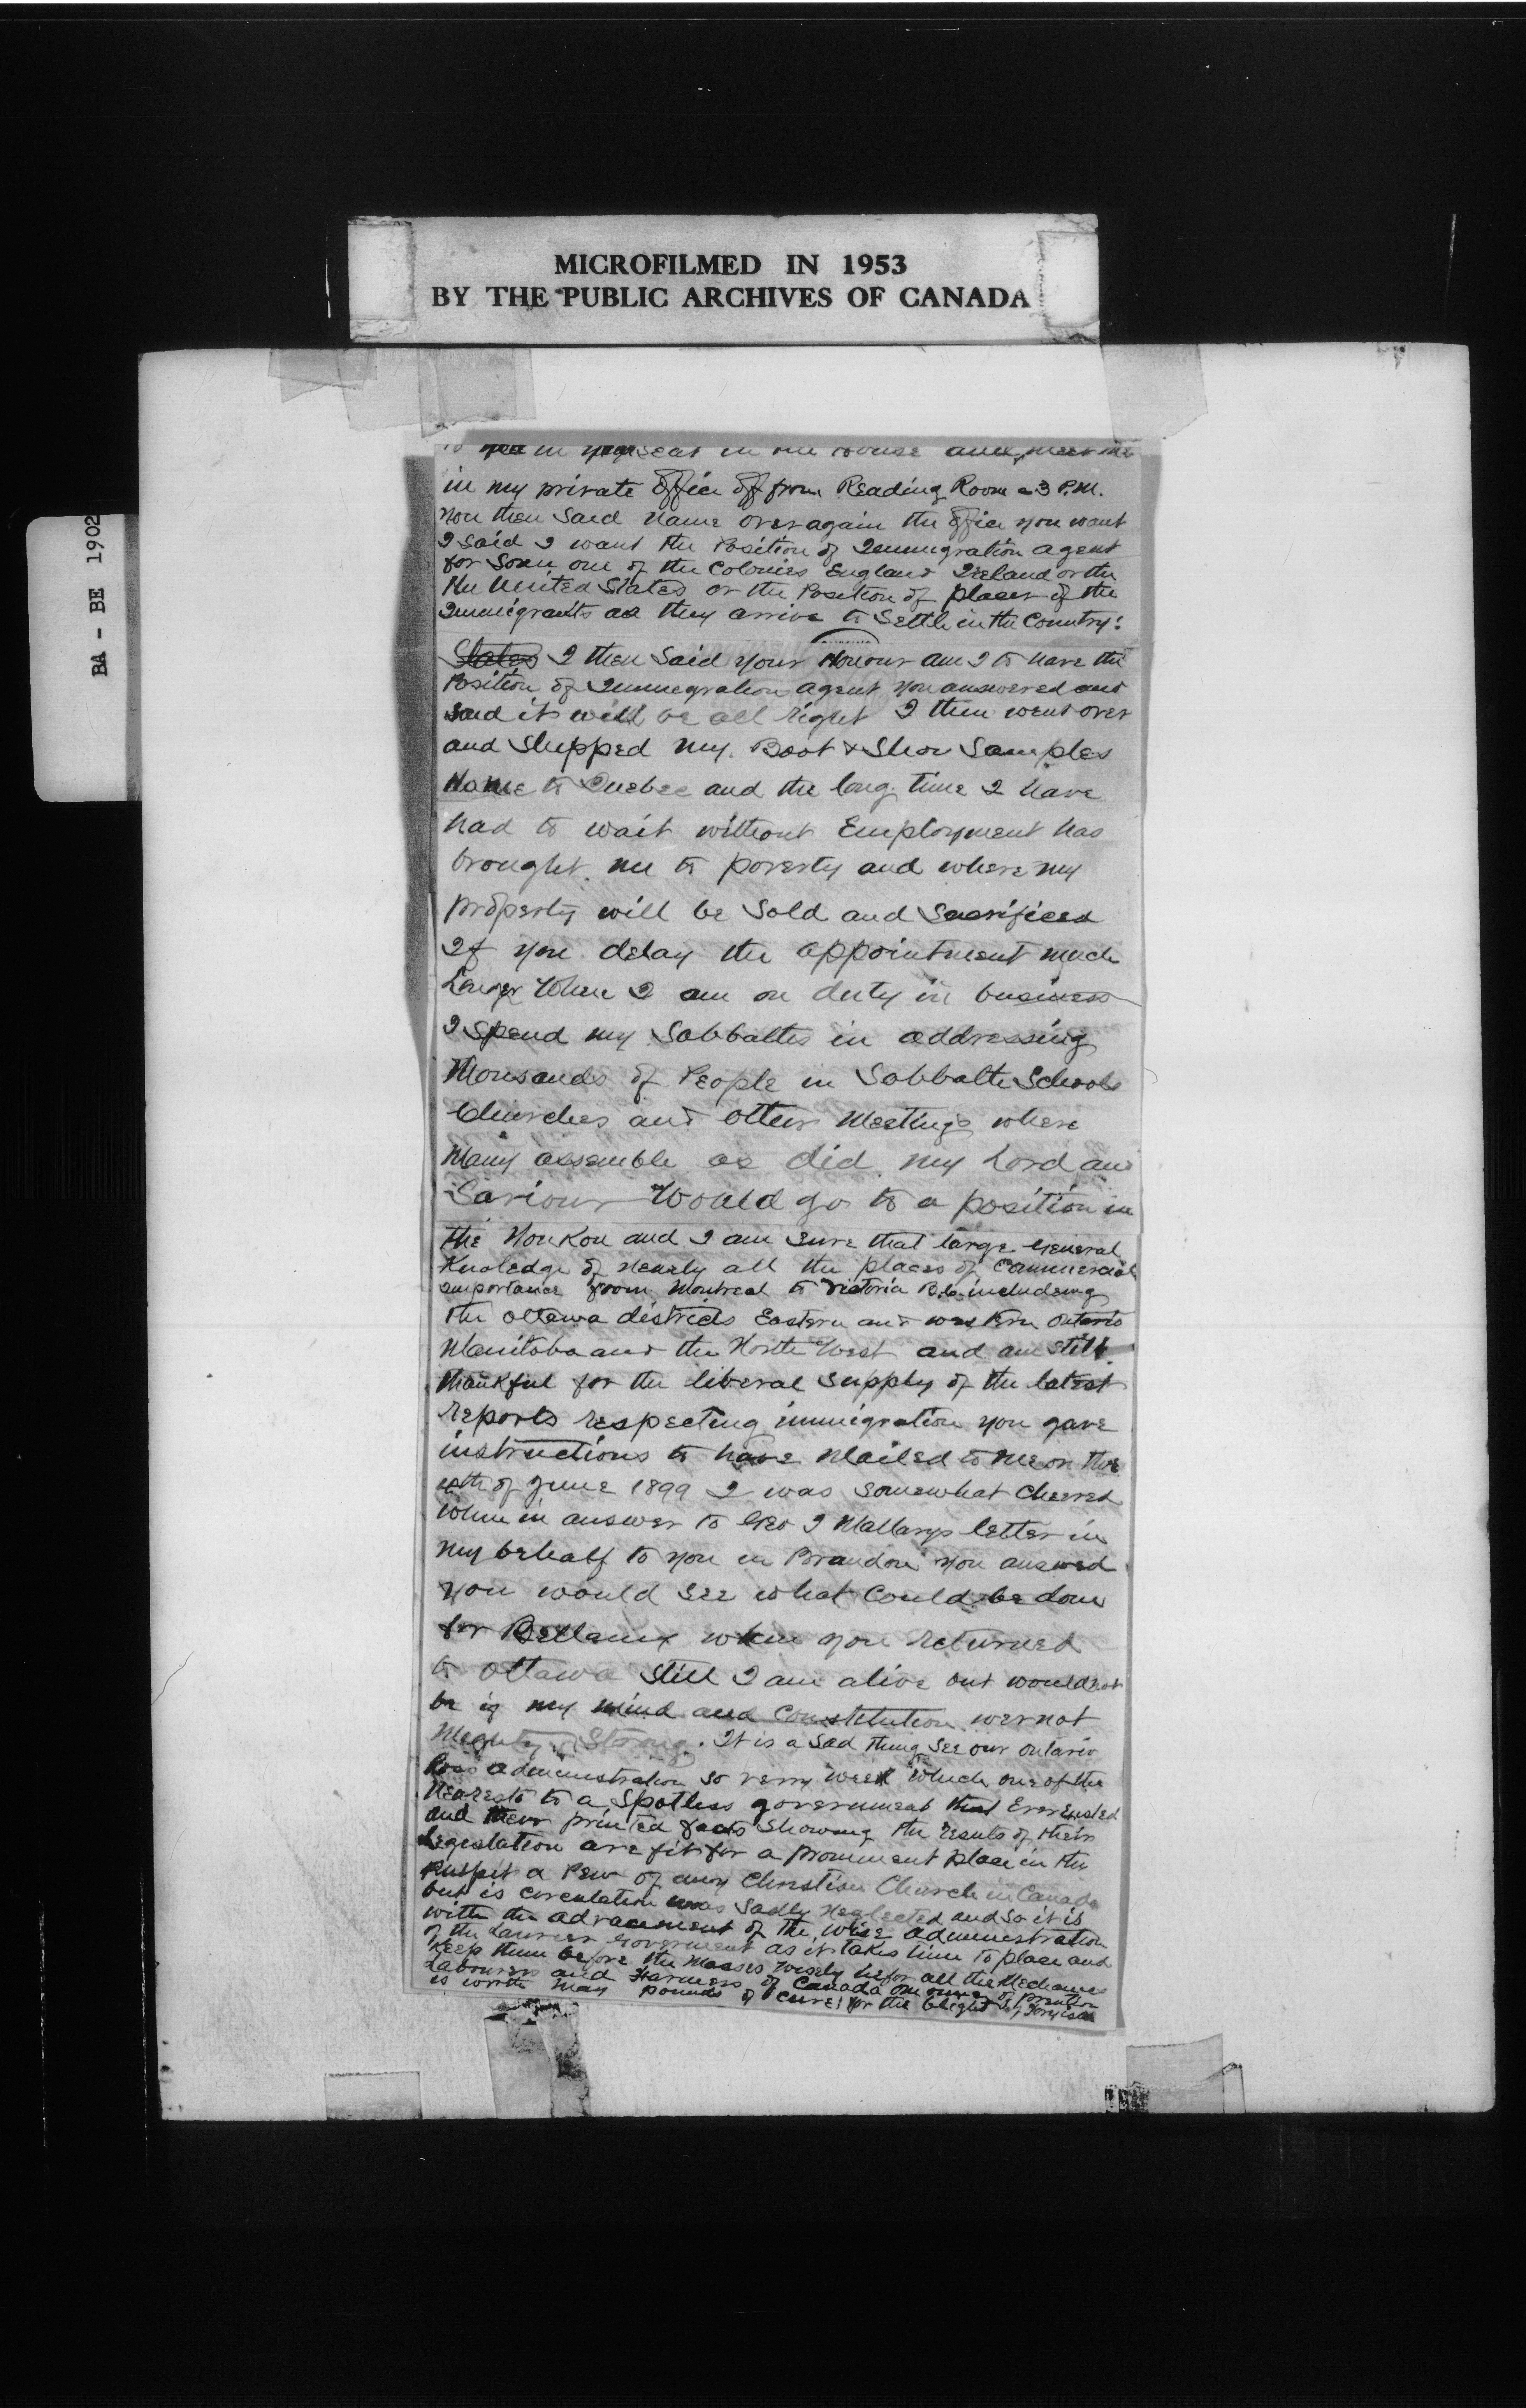 MICROFILMED IN 1953
BY THE PUBLIC ARCHIVES OF CANADA
BA - BE 1902
in my private office off from Reading Room a 3 P.M.
You then Said Name over again the office you want
I Said I want the Position of Immigration agent
for Some one of the Colonies England Ireland or the
the United States or the Position of placer of the
Immigrants as they arrive to Settle in the Country:
States I then Said your Honour am I to have the
Position of Immegration agent you answered and
said it will be all right I then went over
and Shipped my Boot & Shoe Samples
Home to Quebec and the long time I have
had to wait without Employment has
brought me to poverty and where my
property will be Sold and Sacrificed
If you delay the appointment much
Longer When I am on duty in business
I Spend my Sabbaths in addressing
Thousands of People in Sabbath Schools
Churches and other Meetings where
Many assemble as did my Lord and
Saviour Would go to a position in
the Youkon and I am sure that large General
Knoledge of nearly all the places of Commercial
importance from Montreal to Victoria B.C. includeing
the Ottawa districts Eastern and western Ontario
Manitoba and the North West and am still
thankful for the liberal supply of the latest
reports respecting immigration you gave
instructions to have Mailed to me on the
of June 1899 I was somewhat cheered
when in answer to Geo I Mallarys letter in
my behalf to you in Brandon you answed
you would see what Could be done
for Bellamy when you returned
to Ottawa Still I am alive but would not
be if my mind and Constitution wer not
Mighty Strong. It is a Sad thing See our Ontario
Ross administration so verry week which one of the
Nearests to a Spotless government that Ever Existed
and their printed facts Showing the results of their
Legislation are fit for a prominent place in the
Pulpit a Pew of any Christian Church in Canada
but is circulation was Sadly Neglected and So it is
with the advancement of the wise administration
of the Laurier Goverment as it takes time to place and
Keep them before the Masses wisely befor all the Mechanics
Labourers and Farmers of Canada one ounce of
is worth many pounds of cure: for the blight of